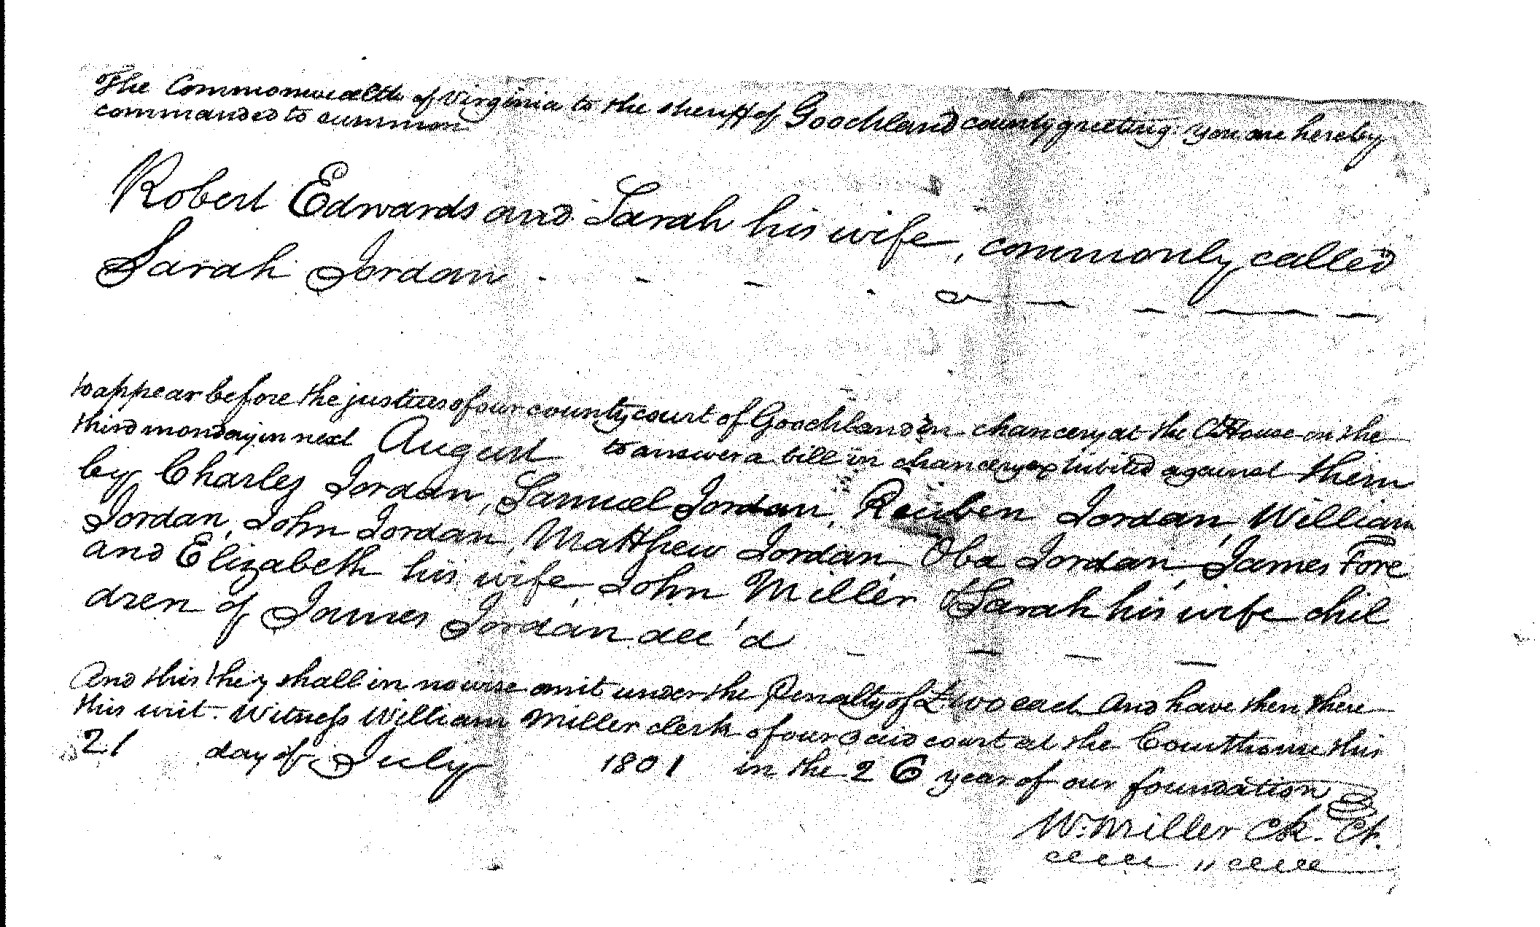 The Commonwealth of Virginia to the sheriff of Goochland county greeting: you are hereby
commanded to summon
Robert Edwards and Sarah his wife, commonly called
Sarah Jordan
to appear before the justices of our county court of Goochland in chancery at the Ct House on the
third monday in next August to answer a bill in chancery exhibited against them
by Charles Jordan, Samuel Jordan, Reuben Jordan, William
Jordan, John Jordan, Matthew Jordan, Oba Jordan, James Fore
and Elizabeth his wife, John Miller & Sarah his wife chil
dren of James Jordan dec'd
And this they shall in nowise omit under the Penalty of £ each And have then there
this writ. Witness William Miller clerk of our said court at the Courthouse this
21 day of July 1801 in the 26 year of our foundation
W. Miller Ck. Ct.